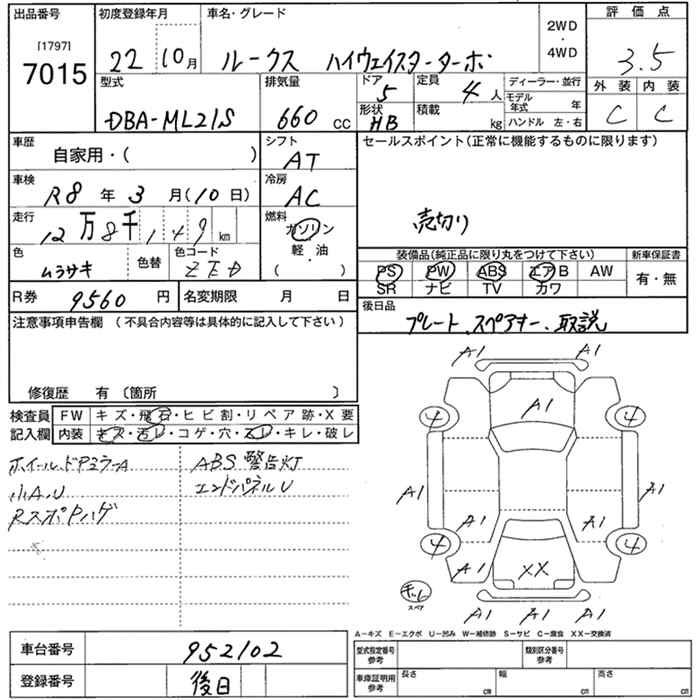 出品番号 初度登録年月 車名・グレード 2WD ・ 4WD 評価点
[1797] 7015 22 10月 ルークス ハイウェイスターターボ 3.5
型式 DBA-ML21S 排気量 660 cc ドア 5 定員 4人 ディーラー・並行 外装 内装
形状 HB 積載 kg モデル年式 年 C C
ハンドル 左・右
車歴 自家用・( ) シフト AT セールスポイント(正常に機能するものに限ります)
車検 R8年3月(10日) 冷房 AC
走行 12万8千149km 燃料 ガソリン 売切り
軽・油
( )
色 ムラサキ 色替 色コード 装備品(純正品に限り丸をつけて下さい) 新車保証書
PS PW ABS エアB AW 有・無
SR ナビ TV カワ
R券 9560円 名変期限 月 日 後日品
プレート、スペアキー、取説
注意事項申告欄 (不具合内容等は具体的に記入して下さい)
修復歴 有 〔箇所 〕
検査員 FW キズ・飛石・ヒビ割・リペア跡・X要
記入欄 内装 キズ・汚レ・コゲ・穴・スレ・キレ・破レ
ホイール、ドアミラーA ABS警告灯
小A.U エンドパネルU
RスポPハゲ
A1 A1
A1
4 4
A1 A1
A1 A1
4 4
A1 XX A1
スペア
A1 A1 A1
A-キズ E-エクボ U-凹み W-補修跡 S-サビ C-腐食 XX-交換済
車台番号 952102 型式指定番号 参考 類別区分番号 参考
登録番号 後日 車庫証明用 参考 長さ cm 幅 cm 高さ cm